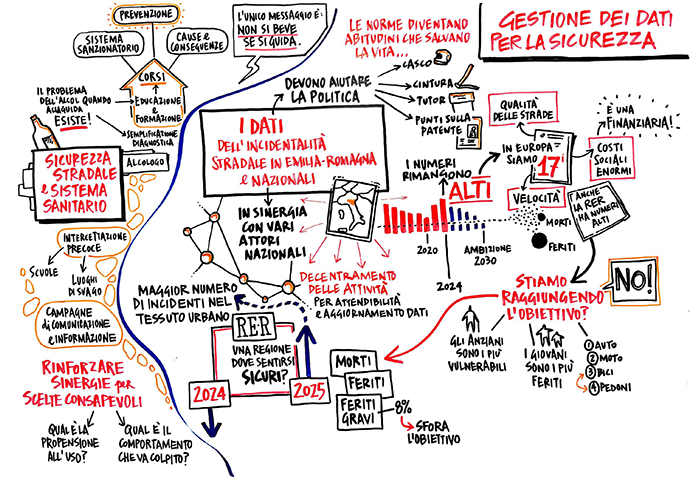 PREVENZIONE
SISTEMA
SANZIONATORIO
CAUSE e
CONSEGUENZE
CORSI
EDUCAZIONE
e
FORMAZIONE
IL PROBLEMA
DELL'ALCOL QUANDO
ALLA GUIDA
ESISTE!
SEMPLIFICAZIONE
DIAGNOSTICA
ALCOLOGO
SICUREZZA
STRADALE
e SISTEMA
SANITARIO
INTERCETTAZIONE
PRECOCE
SCUOLE
LUOGHI
DI SVAGO
CAMPAGNE
di COMUNICAZIONE
e INFORMAZIONE
RINFORZARE
SINERGIE per
SCELTE CONSAPEVOLI
QUAL È LA
PROPENSIONE
ALL'USO?
QUAL È IL
COMPORTAMENTO
CHE VA COLPITO?
L'UNICO MESSAGGIO È:
NON SI BEVE
SE SI GUIDA.
GESTIONE DEI DATI
PER LA SICUREZZA
LE NORME DIVENTANO
ABITUDINI CHE SALVANO
LA VITA...
CASCO
CINTURA
TUTOR
PUNTI SULLA
PATENTE
DEVONO AIUTARE
LA POLITICA
I DATI
DELL'INCIDENTALITÀ
STRADALE IN EMILIA-ROMAGNA
e NAZIONALI
IN SINERGIA
CON VARI
ATTORI
NAZIONALI
I NUMERI
RIMANGONO
ALTI
IN EUROPA
SIAMO
17i
QUALITÀ
DELLE STRADE
È UNA
FINANZIARIA!
COSTI
SOCIALI
ENORMI
VELOCITÀ
MORTI
FERITI
ANCHE
LA RER
HA NUMERI
ALTI
2020
2024
AMBIZIONE
2030
DECENTRAMENTO
DELLE ATTIVITÀ
PER ATTENDIBILITÀ
e AGGIORNAMENTO DATI
MAGGIOR NUMERO
DI INCIDENTI NEL
TESSUTO URBANO
RER
UNA REGIONE
DOVE SENTIRSI
SICURI?
2024
2025
MORTI
FERITI
FERITI
GRAVI
8%
SFORA
L'OBIETTIVO
STIAMO
RAGGIUNGENDO
L'OBIETTIVO?
NO!
GLI ANZIANI
SONO I PIÙ
VULNERABILI
I GIOVANI
SONO I PIÙ
FERITI
1 AUTO
2 MOTO
3 BICI
4 PEDONI